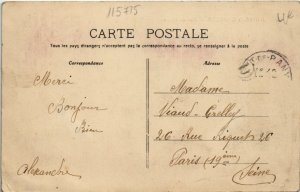 115715
CARTE POSTALE
Tous les pays étrangers n'acceptent pas la correspondance au recto, se renseigner à la poste
Correspondance
Adresse
Merci
Bonjour
Alexandre
Madame
26 Rue Riquet 26
Paris (19ème)
Seine